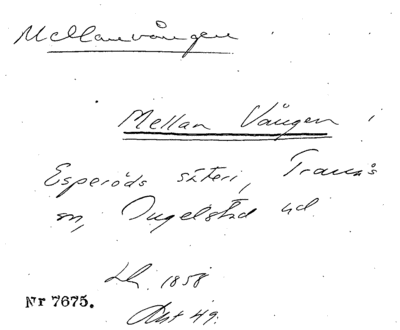 Mellanvången
Mellan Vången i
Esperöds säteri, Tranås
sn, Ingelstad hd
Lh. 1858
Nr 7675.
Akt 49.